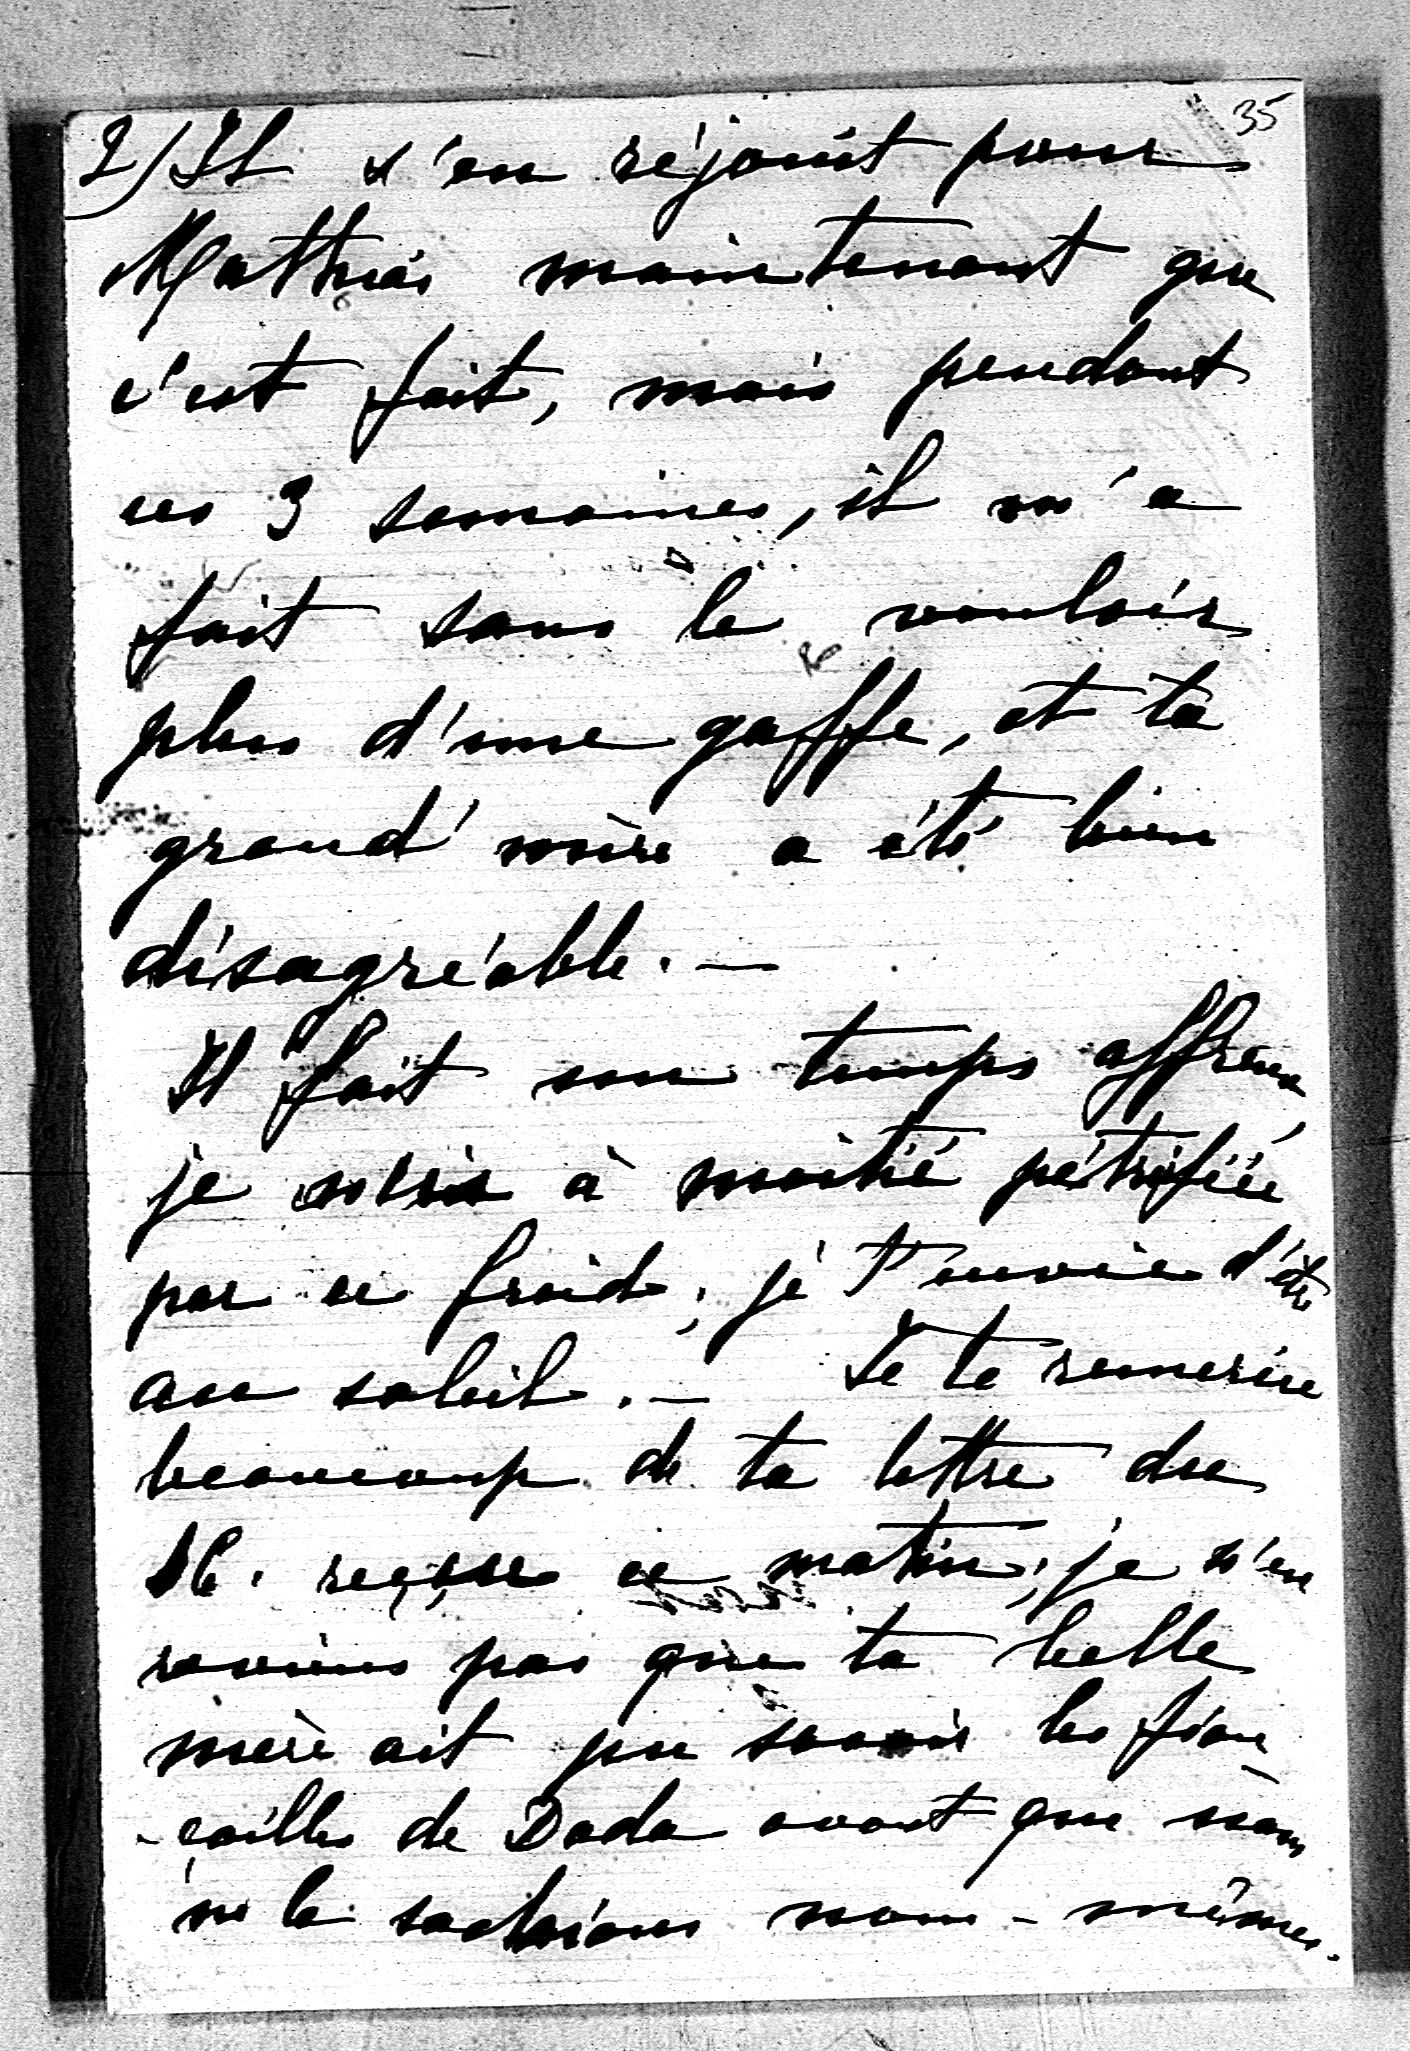 35
2/ Il s'en réjouit pour
Mathias maintenant que
c'est fait, mais pendant
ces 3 semaines, il m'a
fait sans le vouloir
plus d'une gaffe, et ta
grand'mère a été bien
désagréable. —
Il fait un temps affreux,
je suis à moitié pétrifiée
par ce froid; je t'envie d'être
au soleil. — Je te remercie
beaucoup de ta lettre du
16. reçue ce matin; je n'en
reviens pas que ta belle
mère ait pu savoir les fian-
-çailles de Dada avant que nous
ne le sachions nous-mêmes.